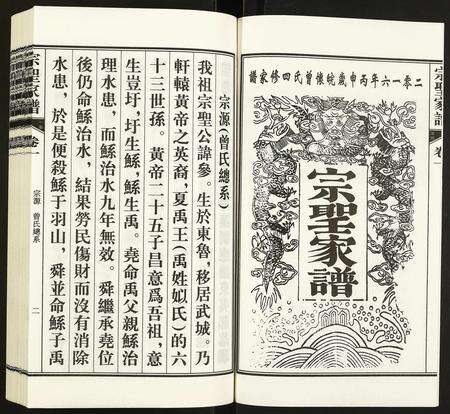 宗聖家譜
卷一
二〇一六年丙申歲皖懷曾氏四修家譜
宗聖家譜
宗源(曾氏總系)
我祖宗聖公諱參。生於東魯,移居武城。乃
軒轅黃帝之英裔,夏禹王(禹姓姒氏)的六
十三世孫。黃帝二十五子昌意爲吾祖,意
生豈圩,圩生鯀,鯀生禹。堯命禹父親鯀治
理水患,而鯀治水九年無效。舜繼承堯位
後仍命鯀治水,結果勞民傷財而沒有消除
水患,於是便殺鯀于羽山,舜並命鯀子禹
宗聖家譜
卷一
宗源 曾氏總系
二